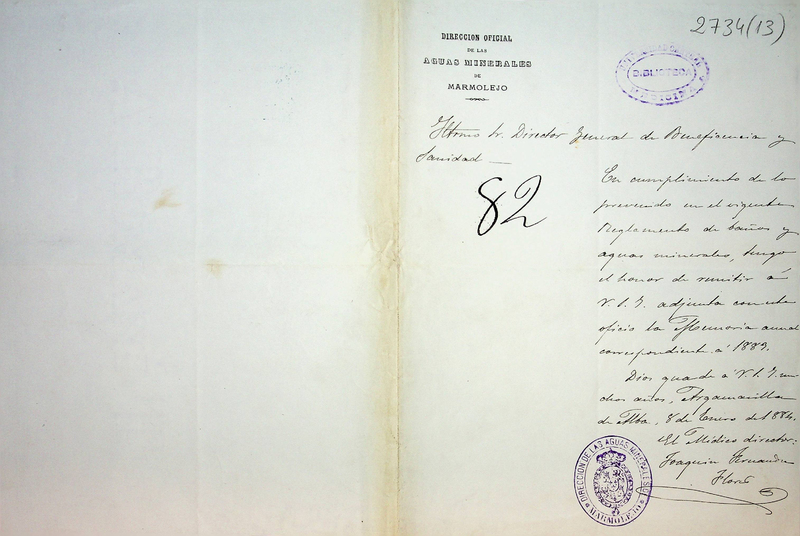 2734(13)
DIRECCION OFICIAL
DE LAS
AGUAS MINERALES
DE
MARMOLEJO
BIBLIOTECA
MEDICINA
Iltmo Sr. Director General de Beneficencia y
Sanidad
82
En cumplimiento de lo
prevenido en el vigente
Reglamento de baños y
aguas minerales, tengo
el honor de remitir á
V.I.I. adjunta con este
oficio la Memoria anual
correspondiente á 1883.
Dios guarde á V.I.I. mu
chos años, Argamasilla
de Alba, 8 de Enero de 1884.
El Médico director:
Joaquin Fernandez
Flores
DIRECCION DE LAS AGUAS MINERALES DE
MARMOLEJO